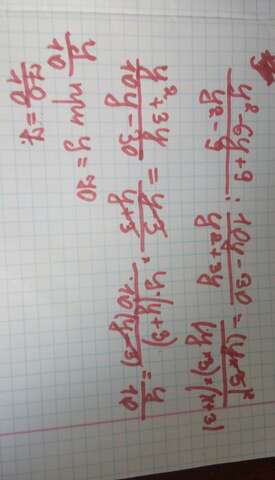 \frac{y²-6y+9}{y²-9} : \frac{10y-30}{y²+3y} = \frac{(y-3)²}{(y-3)·(y+3)}
\frac{y²+3y}{10y-30} = \frac{y-3}{y+3} · \frac{y·(y+3)}{10(y-3)} = \frac{y}{10}
\frac{y}{10} при y = 70
\frac{70}{10} = 7.